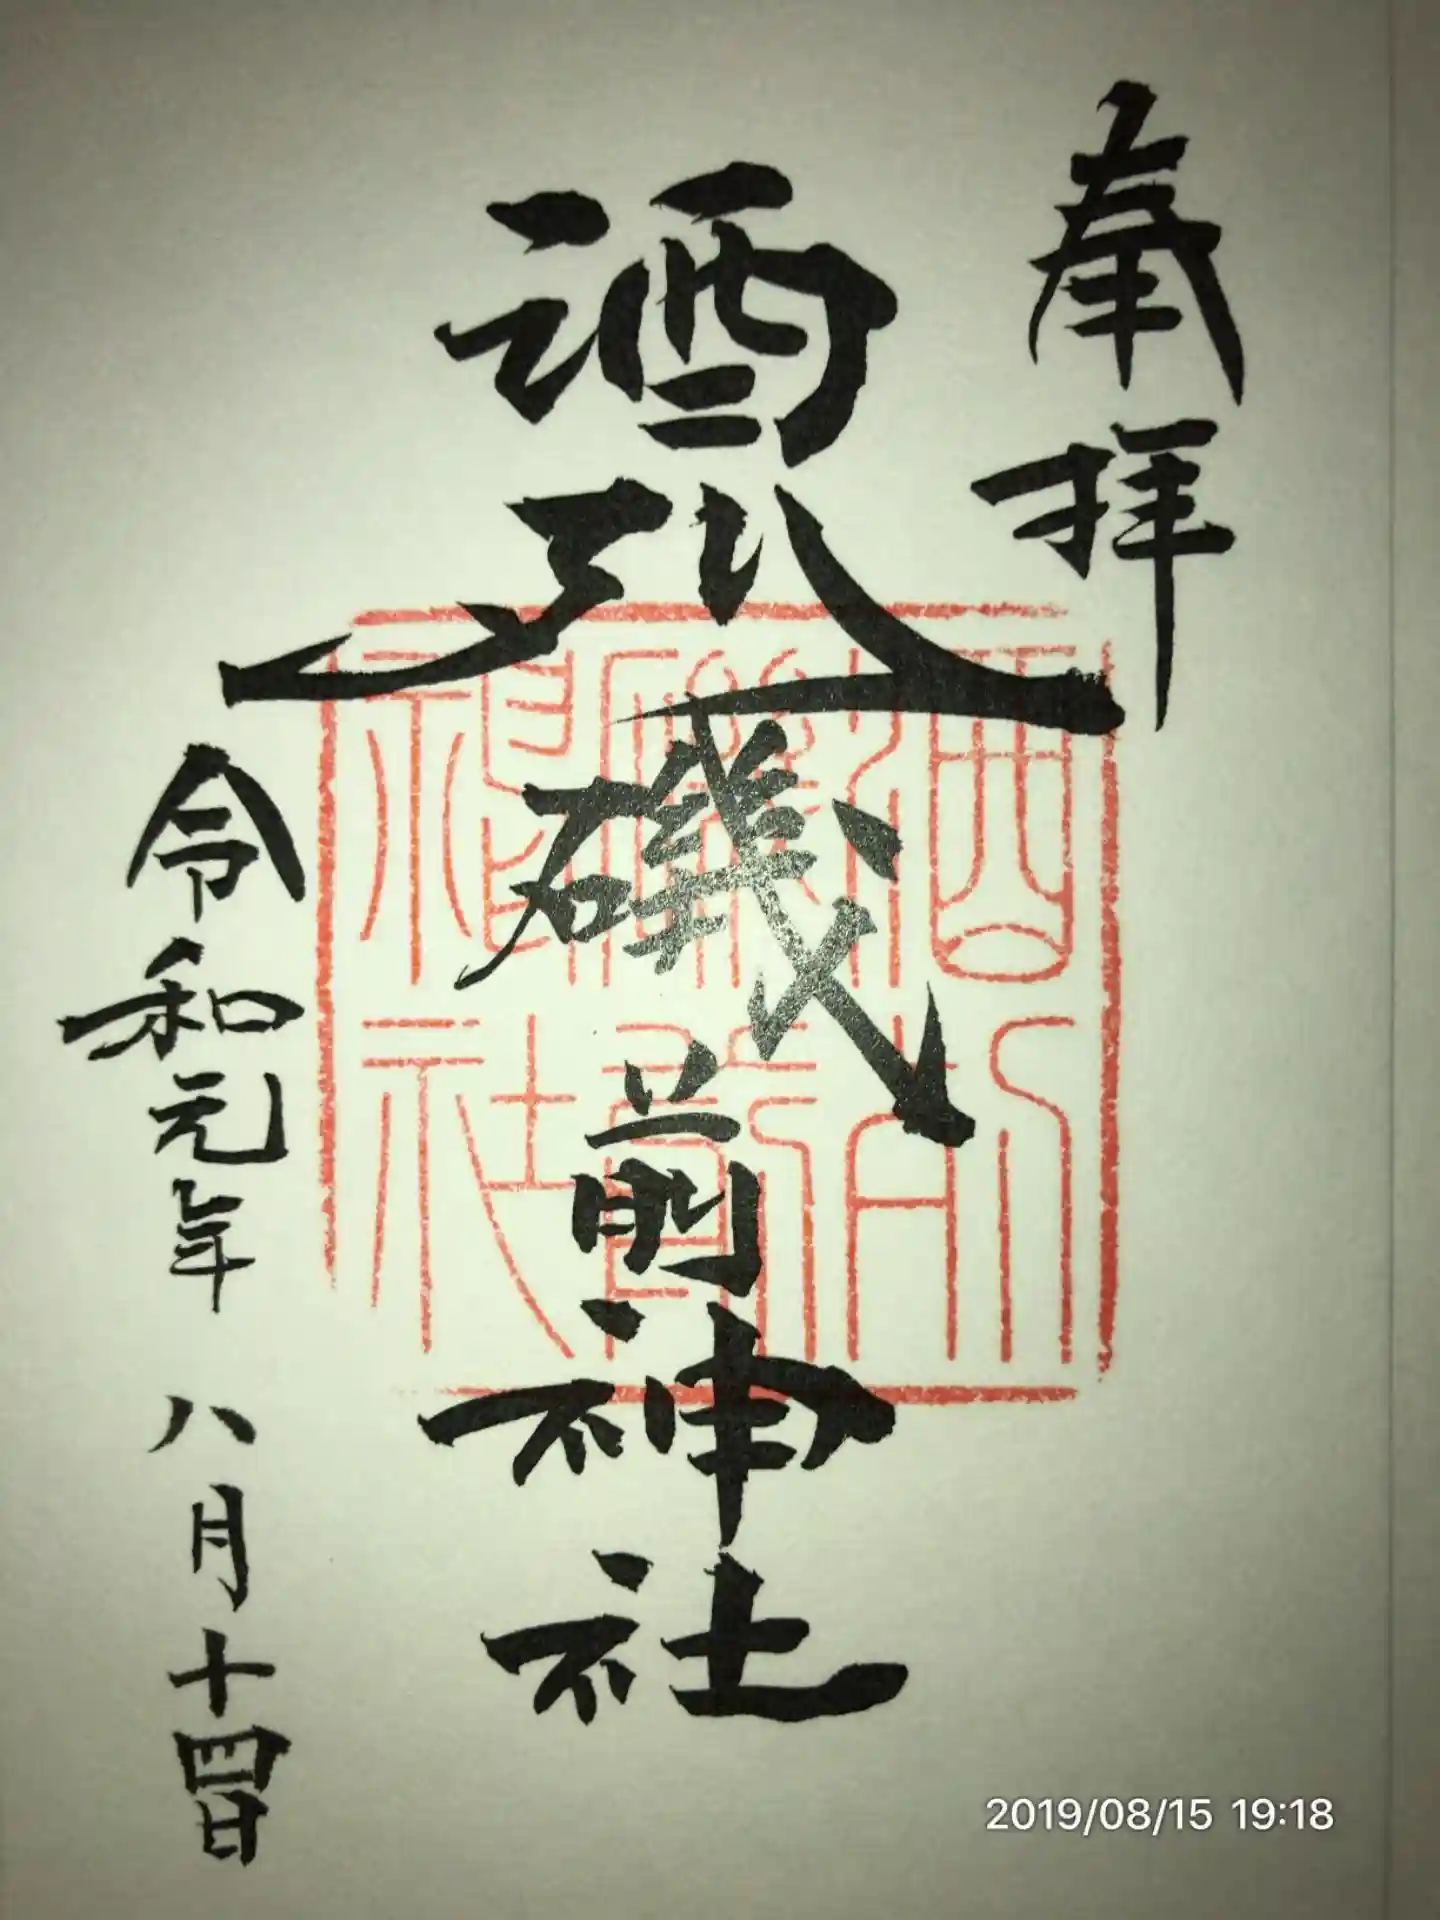 奉拝
酒列磯前神社
令和元年 八月十四日
2019/08/15 19:18